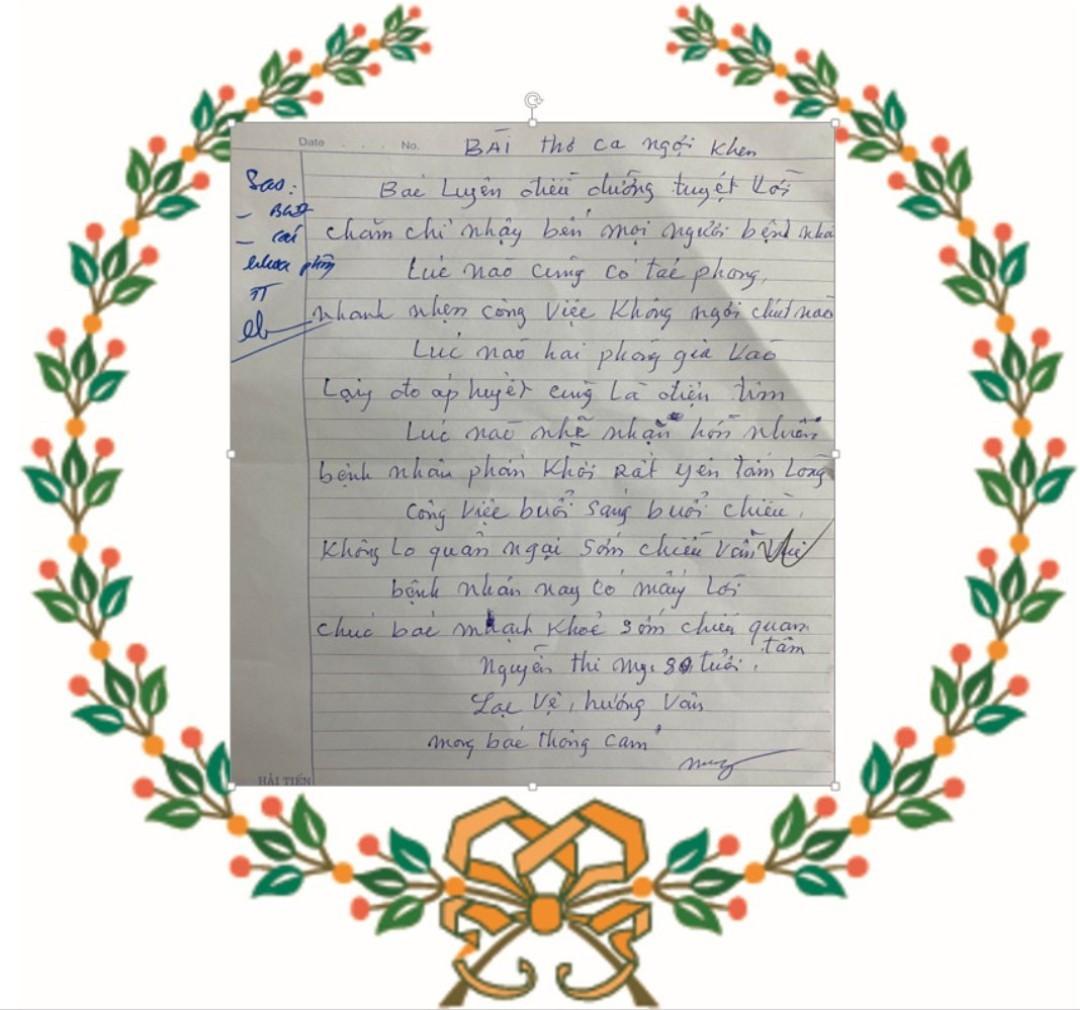 Date . . . . No.
BÀI thơ ca ngợi khen
Sao:
Bác Luyện điều dưỡng tuyệt vời
- BGĐ
chăm chỉ nhậy bén mọi người bệnh nhân
- các
khoa phòng
Lúc nào cũng có tác phong,
nhanh nhẹn công việc không ngơi chút nào
Lúc nào hai phòng gia vào
Lạy đo áp huyết cũng là điện tim
Lúc nào nhẽ nhặn hơn nhiều
bệnh nhân phấn khởi Rất yên tâm Lòng
Công việc buổi sáng buổi chiều,
Không lo quản ngại sớm chiều vẫn vui
bệnh nhân nay có mấy lời
chúc bác mạnh khoẻ sớm chiều quan tâm
Nguyễn thi Mỵ, 80 tuổi,
Lạc Vệ, hương Vân
mong bác thông cảm
HẢI TIẾN